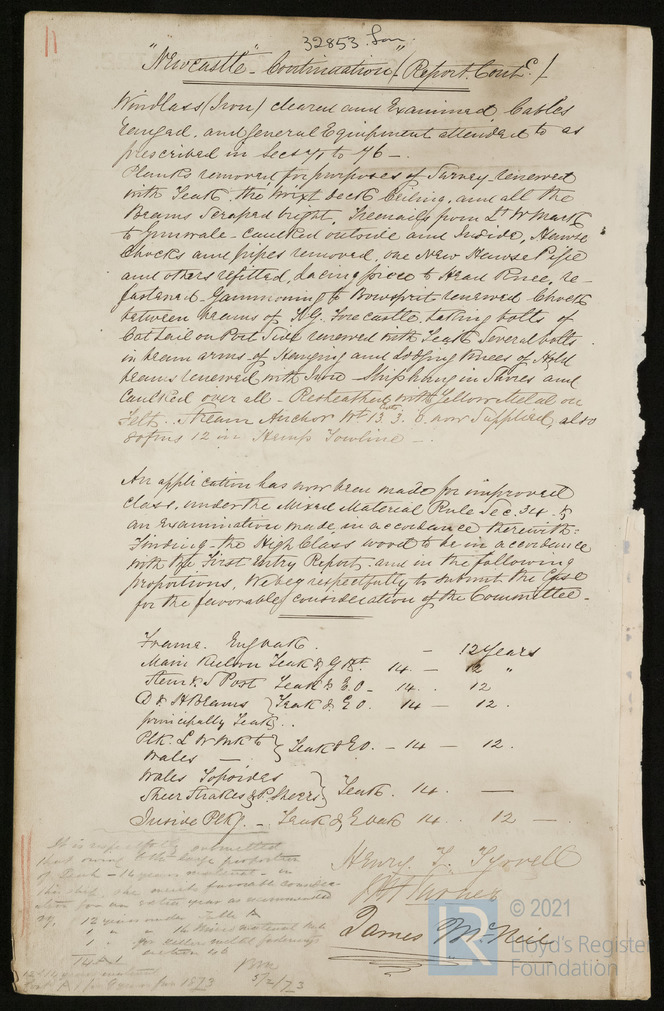 32853 Lon
"Newcastle" - Continuation (Report Contd.)
Windlass (Iron) cleared and Examined, Cables
ranged, and general Equipment attended to as
prescribed in Secs to 76 -
Planks removed for purposes of Survey renewed
with Teak, the Mixt deck Ceiling, and all the
Beams Scraped bright, Treenails from Lt Wr Mark
to Gunwale - caulked outside and Inside, Hawse
Chocks and pipes removed, one New Hawse Pipe
and others refitted, lacing piece to Head Knee, re-
fastened - Gammoning to Bowsprit renewed Chock
between beams of T.G. Forecastle, taking bolts of
Cathead on Port Side renewed with Teak Several bolts
in beam arms of Hanging and lodging knees of Hold
beams renewed with Iron - Ship hung in Slives and
Caulked over all - Resheathed with Yellow Metal on
Felt. Stream Anchor Wt 13. 3. 0. now Supplied, also
80 fms 12 in Hemp Towline -
An application has now been made for improved
class, under the Mixed Material Rule Sec. 34 - &
an Examination made, in accordance therewith:
Finding the High Class wood to be in accordance
with the First Entry Report and in the following
proportions, We beg respectfully to submit the Case
for the favorable consideration of the Committee -
Frame. Eng Oak. - 12 Years
Main Keelson Teak & G Ht. 14. - 12 "
Stem & S Post Teak & E.O - 14. . 12
D & H Beams } Teak & E O. 14 - 12.
principally Teak.
Plk. L W Mk to } Teak & E O. - 14 - 12.
Wales -
Wales Topsides } Teak. 14. -
Sheer Strakes & P. Sheers
Inside Plkg. - Teak & E Oak 14. . 12 -
It is respectfully submitted
that owing to the large proportion
of Teak - 14 years material - in
this ship, she merits favorable considera-
tion for an extra year as recommended
12 years under Table A
1 " " Mixed material Rule
1 " for Yellow metal fastenings
14 A1
5/2/73
Henry. J. Tyrrell
James McNeil
© 2021
LR
Lloyd's Register
Foundation